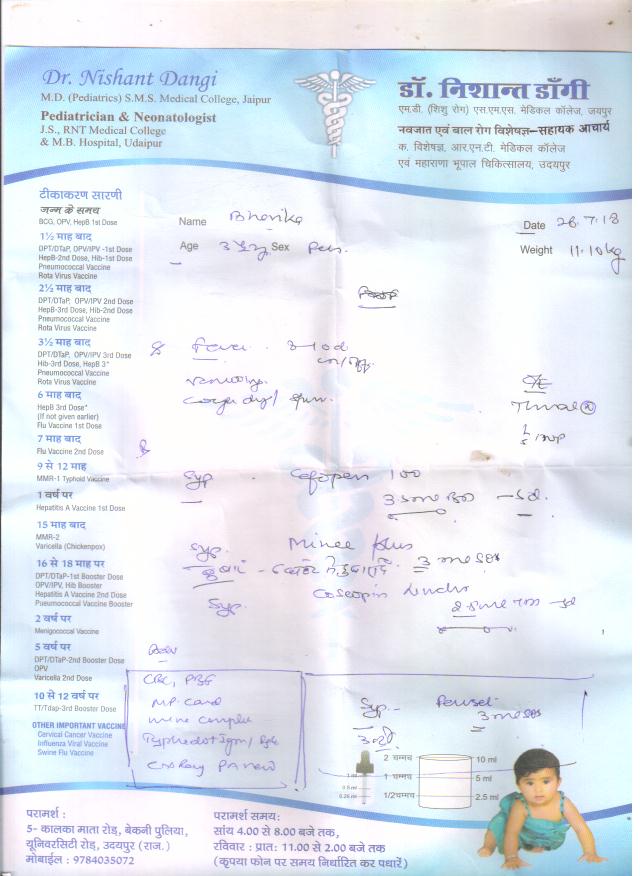 Dr. Nishant Dangi
M.D. (Pediatrics) S.M.S. Medical College, Jaipur
Pediatrician & Neonatologist
J.S., RNT Medical College
& M.B. Hospital, Udaipur
डॉ. निशान्त डाँगी
एम.डी. (शिशु रोग) एस.एम.एस. मेडिकल कॉलेज, जयपुर
नवजात एवं बाल रोग विशेषज्ञ–सहायक आचार्य
क. विशेषज्ञ, आर.एन.टी. मेडिकल कॉलेज
एवं महाराणा भूपाल चिकित्सालय, उदयपुर
टीकाकरण सारणी
जन्म के समय
BCG, OPV, HepB 1st Dose
1½ माह बाद
DPT/DTaP, OPV/IPV -1st Dose
HepB-2nd Dose, Hib-1st Dose
Pneumococcal Vaccine
Rota Virus Vaccine
2½ माह बाद
DPT/DTaP, OPV/IPV 2nd Dose
HepB-3rd Dose, Hib-2nd Dose
Pneumococcal Vaccine
Rota Virus Vaccine
3½ माह बाद
DPT/DTaP, OPV/IPV 3rd Dose
Hib-3rd Dose, HepB 3*
Pneumococcal Vaccine
Rota Virus Vaccine
6 माह बाद
HepB 3rd Dose*
(If not given earlier)
Flu Vaccine 1st Dose
7 माह बाद
Flu Vaccine 2nd Dose
9 से 12 माह
MMR-1 Typhoid Vaccine
1 वर्ष पर
Hepatitis A Vaccine 1st Dose
15 माह बाद
MMR-2
Varicella (Chickenpox)
16 से 18 माह पर
DPT/DTaP-1st Booster Dose
OPV/IPV, Hib Booster
Hepatitis A Vaccine 2nd Dose
Pueumococcal Vaccine Booster
2 वर्ष पर
Menigococcal Vaccine
5 वर्ष पर
DPT/DTaP-2nd Booster Dose
OPV
Varicella 2nd Dose
10 से 12 वर्ष पर
TT/Tdap-3rd Booster Dose
OTHER IMPORTANT VACCINE
Cervical Cancer Vaccine
Influenza Viral Vaccine
Swine Flu Vaccine
Name Bhavika
Date 26.7.18
Age 3 Sex
Weight 11.10 kg
Fever 3
vomiting
Syp. 100
Syp. plus
3 ml sos
Syp.
CBC, PBF
MP Card
urine complete
Typhidot IgM
Syp.
3 ml sos
2 चम्मच 10 ml
1 ml 1 चम्मच 5 ml
0.5 ml
0.25 ml 1/2चम्मच 2.5 ml
परामर्श :
5- कालका माता रोड़, बेकनी पुलिया,
यूनिवरसिटी रोड़, उदयपुर (राज.)
मोबाईल : 9784035072
परामर्श समय:
सांय 4.00 से 8.00 बजे तक,
रविवार : प्रात: 11.00 से 2.00 बजे तक
(कृपया फोन पर समय निर्धारित कर पधारें)